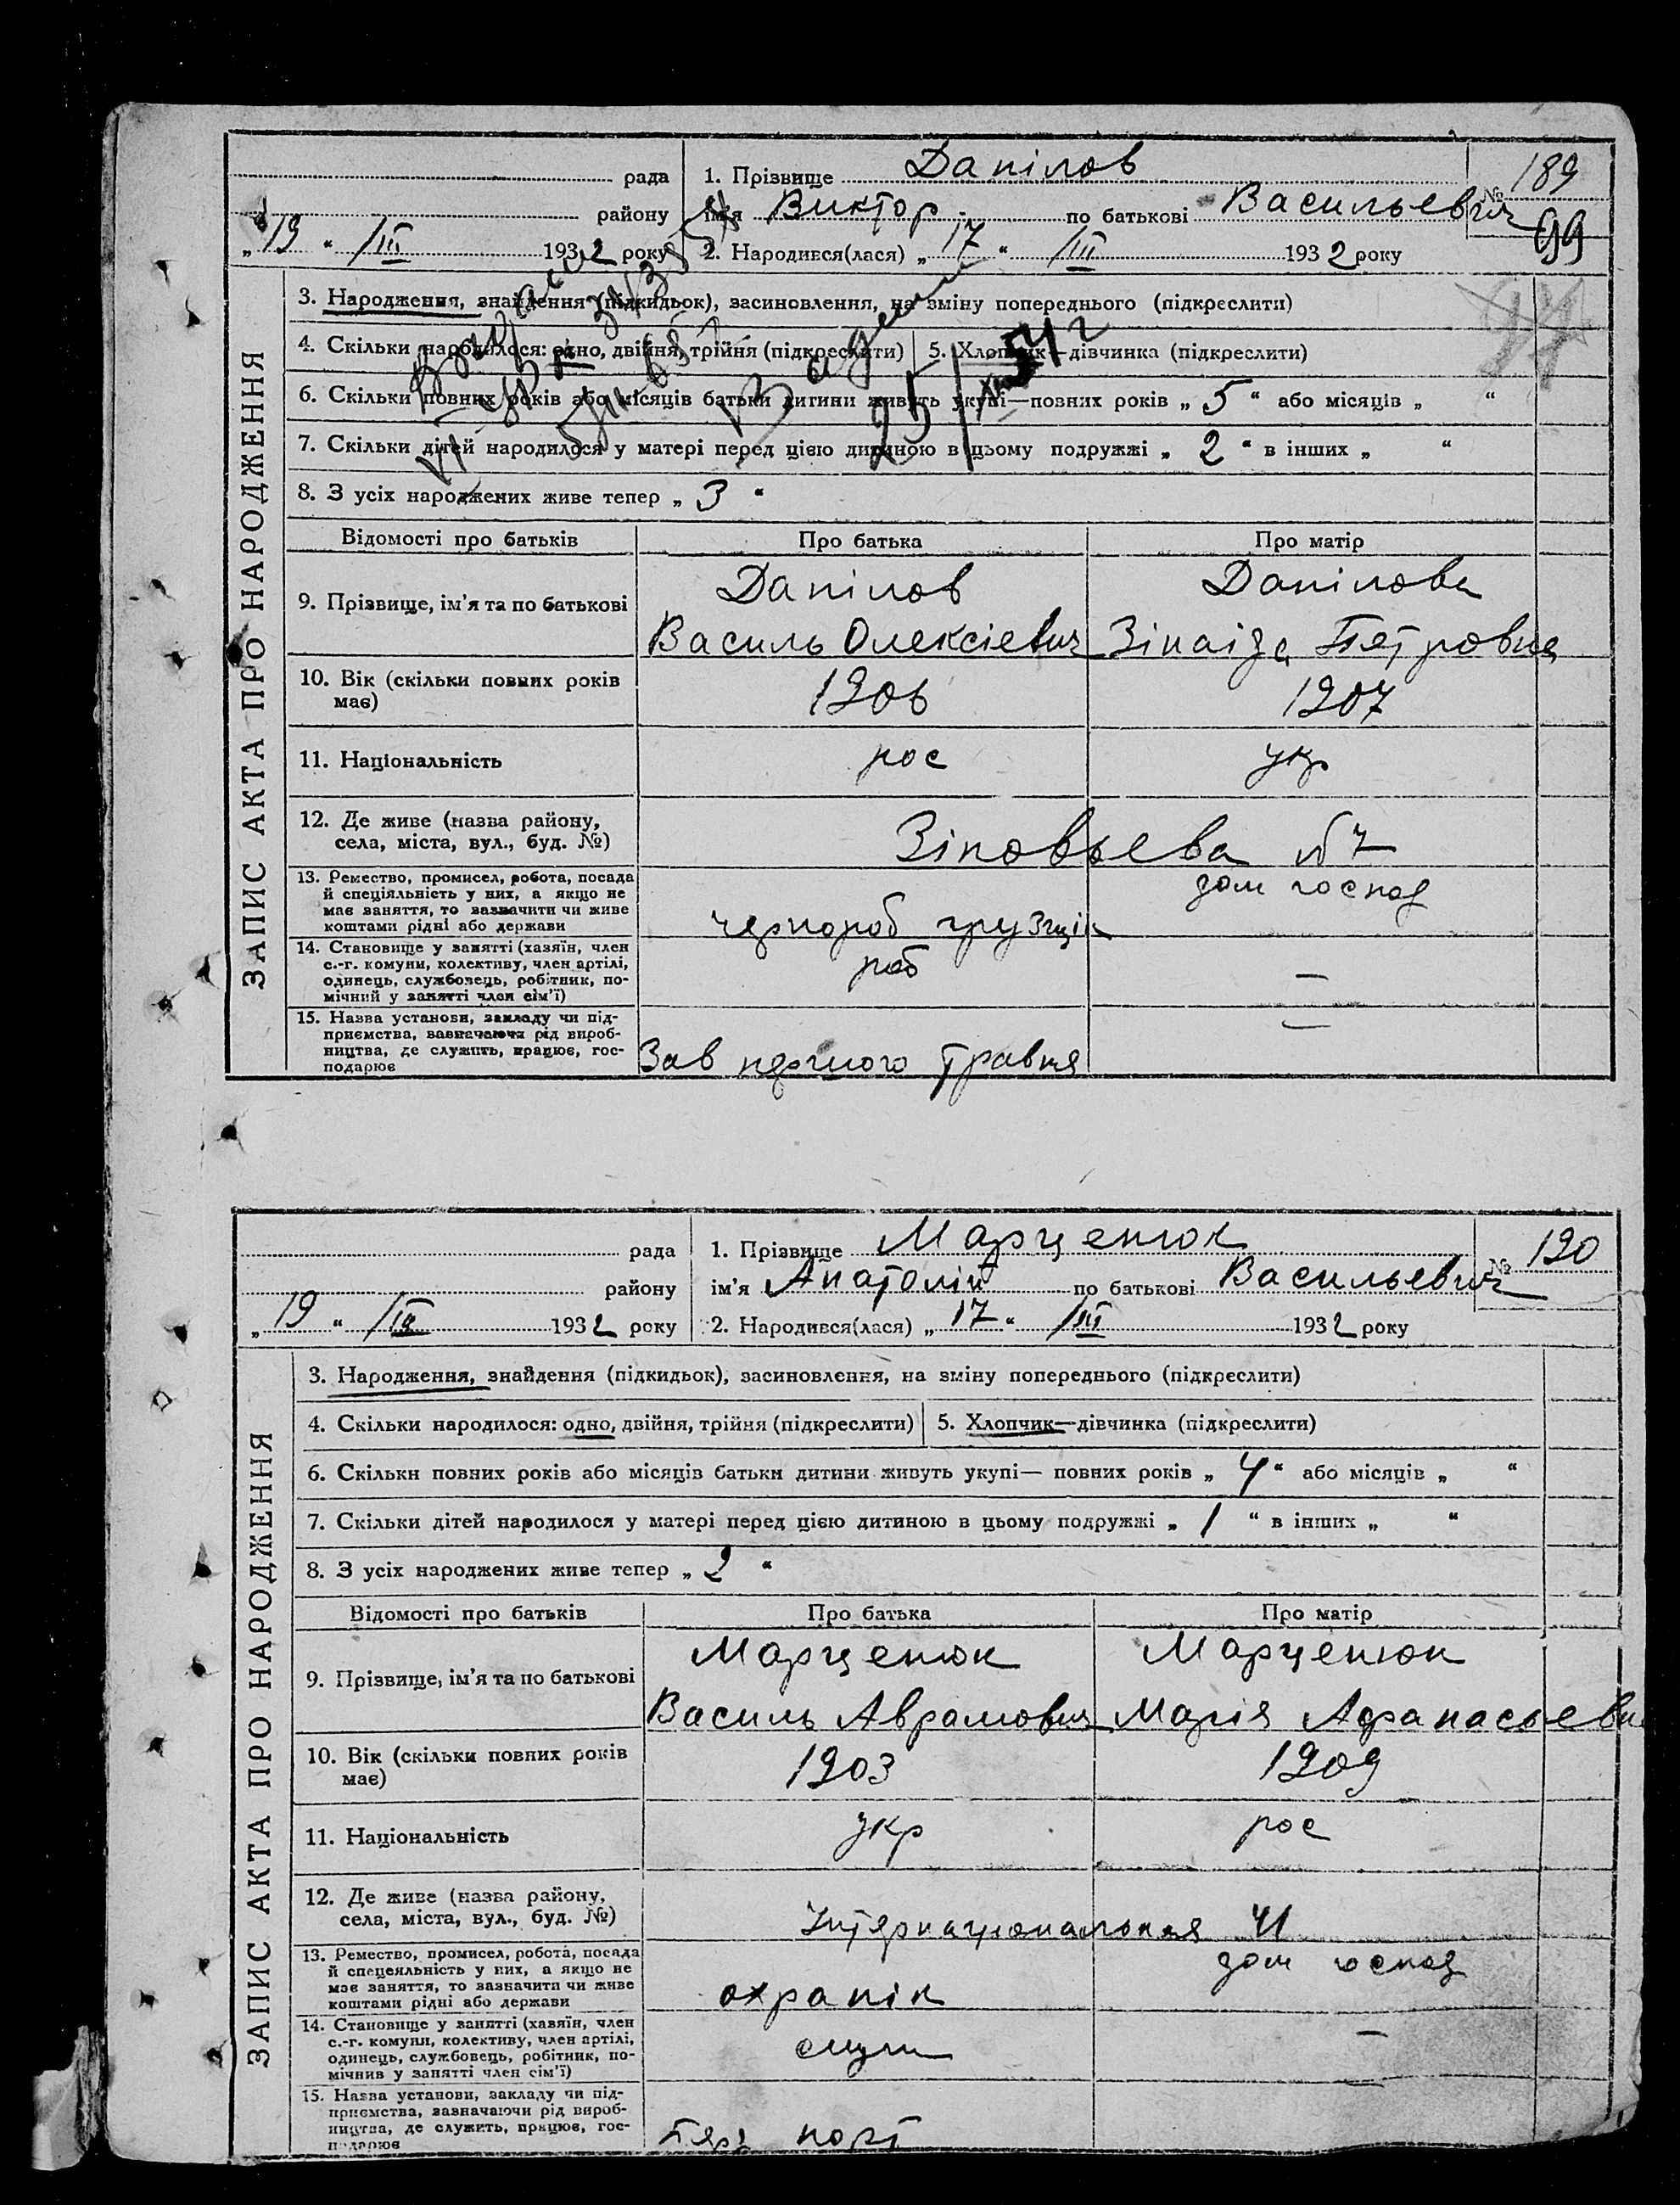 рада
району
„ 19 “ /III 1932 року
1. Прізвище Данілов
ім'я Виктор по батькові Васильевич
2. Народився(лася) „ 17 “ /III 1932 року
№ 189
99
ЗАПИС АКТА ПРО НАРОДЖЕННЯ
3. Народження, знайдення (підкидьок), засиновлення, на зміну попереднього (підкреслити)
4. Скільки народилося: одно, двійня, трійня (підкреслити) 5. Хлопчик—дівчинка (підкреслити)
6. Скільки повних років або місяців батьки дитини живуть укупі—повних років „ 5 “ або місяців „ “
7. Скільки дітей народилося у матері перед цією дитиною в цьому подружжі „ 2 “ в інших „ “
8. З усіх народжених живе тепер „ 3 “
Відомості про батьків Про батька Про матір
9. Прізвище, ім'я та по батькові
Данілов Данілова
Василь Олексіевич Зінаіда Петровна
10. Вік (скільки повних років має)
1906 1907
11. Національність рос укр
12. Де живе (назва району, села, міста, вул., буд. №)
Зіновьева 7
13. Ремество, промисел, робота, посада
й спеціяльність у них, а якщо не
має заняття, то зазначити чи живе
коштами рідні або держави
чернороб грузчік дом господ
14. Становище у занятті (хазяїн, член
с.-г. комуни, колективу, член артілі,
одинець, службовець, робітник, по-
мічний у занятті член сім'ї)
роб —
15. Назва установи, закладу чи під-
приємства, зазначаючи рід вироб-
ництва, де служить, працює, гос-
подарює
Зав першого травня —
рада
району
„ 19 “ /III 1932 року
1. Прізвище Марценюк
ім'я Анатолій по батькові Васильевич
2. Народився(лася) „ 17 “ /III 1932 року
№ 190
ЗАПИС АКТА ПРО НАРОДЖЕННЯ
3. Народження, знайдення (підкидьок), засиновлення, на зміну попереднього (підкреслити)
4. Скільки народилося: одно, двійня, трійня (підкреслити) 5. Хлопчик—дівчинка (підкреслити)
6. Скільки повних років або місяців батьки дитини живуть укупі— повних років „ 4 “ або місяців „ “
7. Скільки дітей народилося у матері перед цією дитиною в цьому подружжі „ 1 “ в інших „ “
8. З усіх народжених живе тепер „ 2 “
Відомості про батьків Про батька Про матір
9. Прізвище, ім'я та по батькові
Марценюк Марценюк
Василь Аврамович Марія Афанасьевна
10. Вік (скільки повних років має)
1903 1909
11. Національність укр рос
12. Де живе (назва району, села, міста, вул., буд. №)
Інтернациональная 41
13. Ремество, промисел, робота, посада
й спецеяльність у них, а якщо не
має заняття, то зазначити чи живе
коштами рідні або держави
охранік дом господ
14. Становище у занятті (хазяїн, член
с.-г. комуни, колективу, член артілі,
одинець, службовець, робітник, по-
мічнив у занятті член сім'ї)
служ —
15. Назва установи, закладу чи під-
приємства, зазначаючи рід вироб-
ництва, де служить, працює, гос-
подарює
порт —